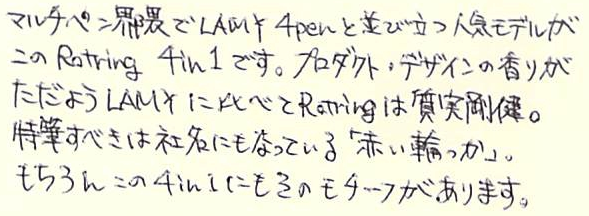 マルチペン界隈でLAMY 4penと並び立つ人気モデルが
このRotring 4in1です。プロダクト・デザインの香りが
ただようLAMYに比べてRotringは質実剛健。
特筆すべきは社名にもなっている「赤い輪っか」。
もちろんこの4in1にもそのモチーフがあります。